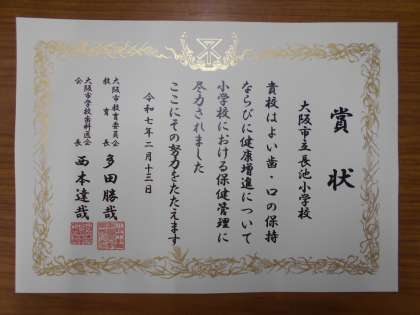 賞状
大阪市立長池小学校
貴校はよい歯・口の保持
ならびに健康増進について
小学校における保健管理に
尽力されました
ここにその努力をたたえます
令和七年二月十三日
大阪市教育委員会
教育長 多田勝哉
大阪市学校歯科医会
会長 西本達哉